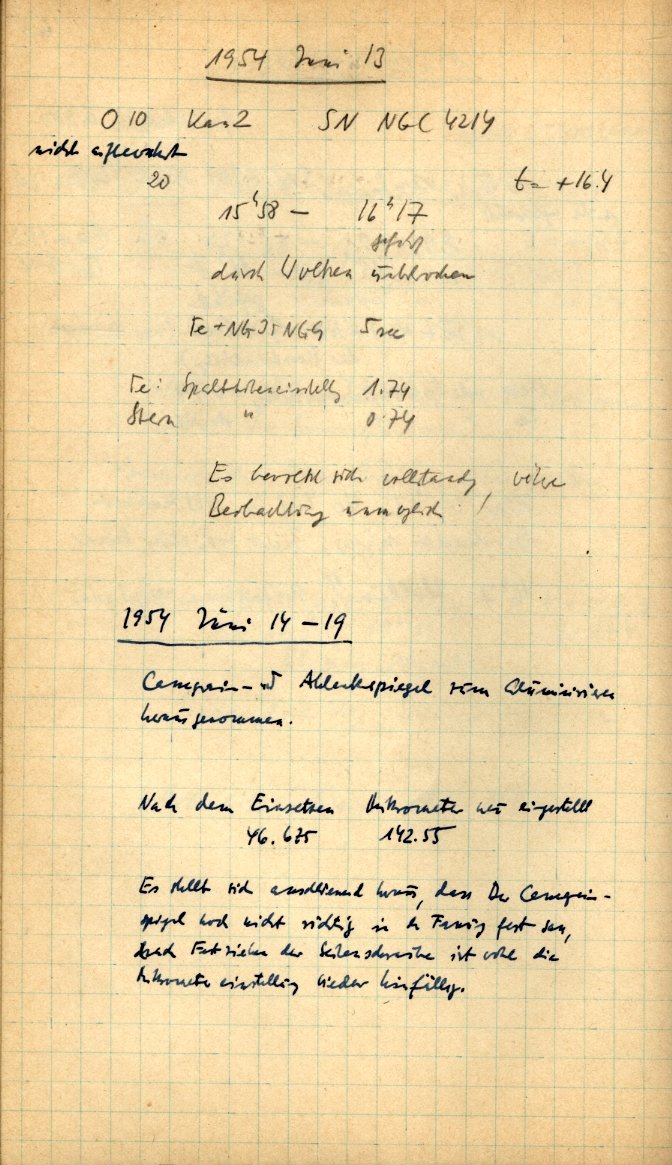 1954 Juni 13
O 10 Kan2 SN NGC 4214
nicht aufbewahrt
20 t= +16.4
15ʰ58 – 16ʰ17
durch Wolken unterbrochen
Fe + 5 sec
Fe: Spalthöheneinstellg 1.74
Stern " 0.74
Es bewölkt sich vollständig,
Beobachtung unmöglich!
1954 Juni 14 – 19
Cassegrain- und Ablenkspiegel zum Aluminisieren
herausgenommen.
Nach dem Einsetzen Mikrometer neu eingestellt
46.675 142.55
Es stellt sich anschliessend heraus, dass der Cassegrain-
spiegel noch nicht richtig in der Fassung fest sass,
durch Festziehen der ist wohl die
Mikrometereinstellung wieder hinfällig.